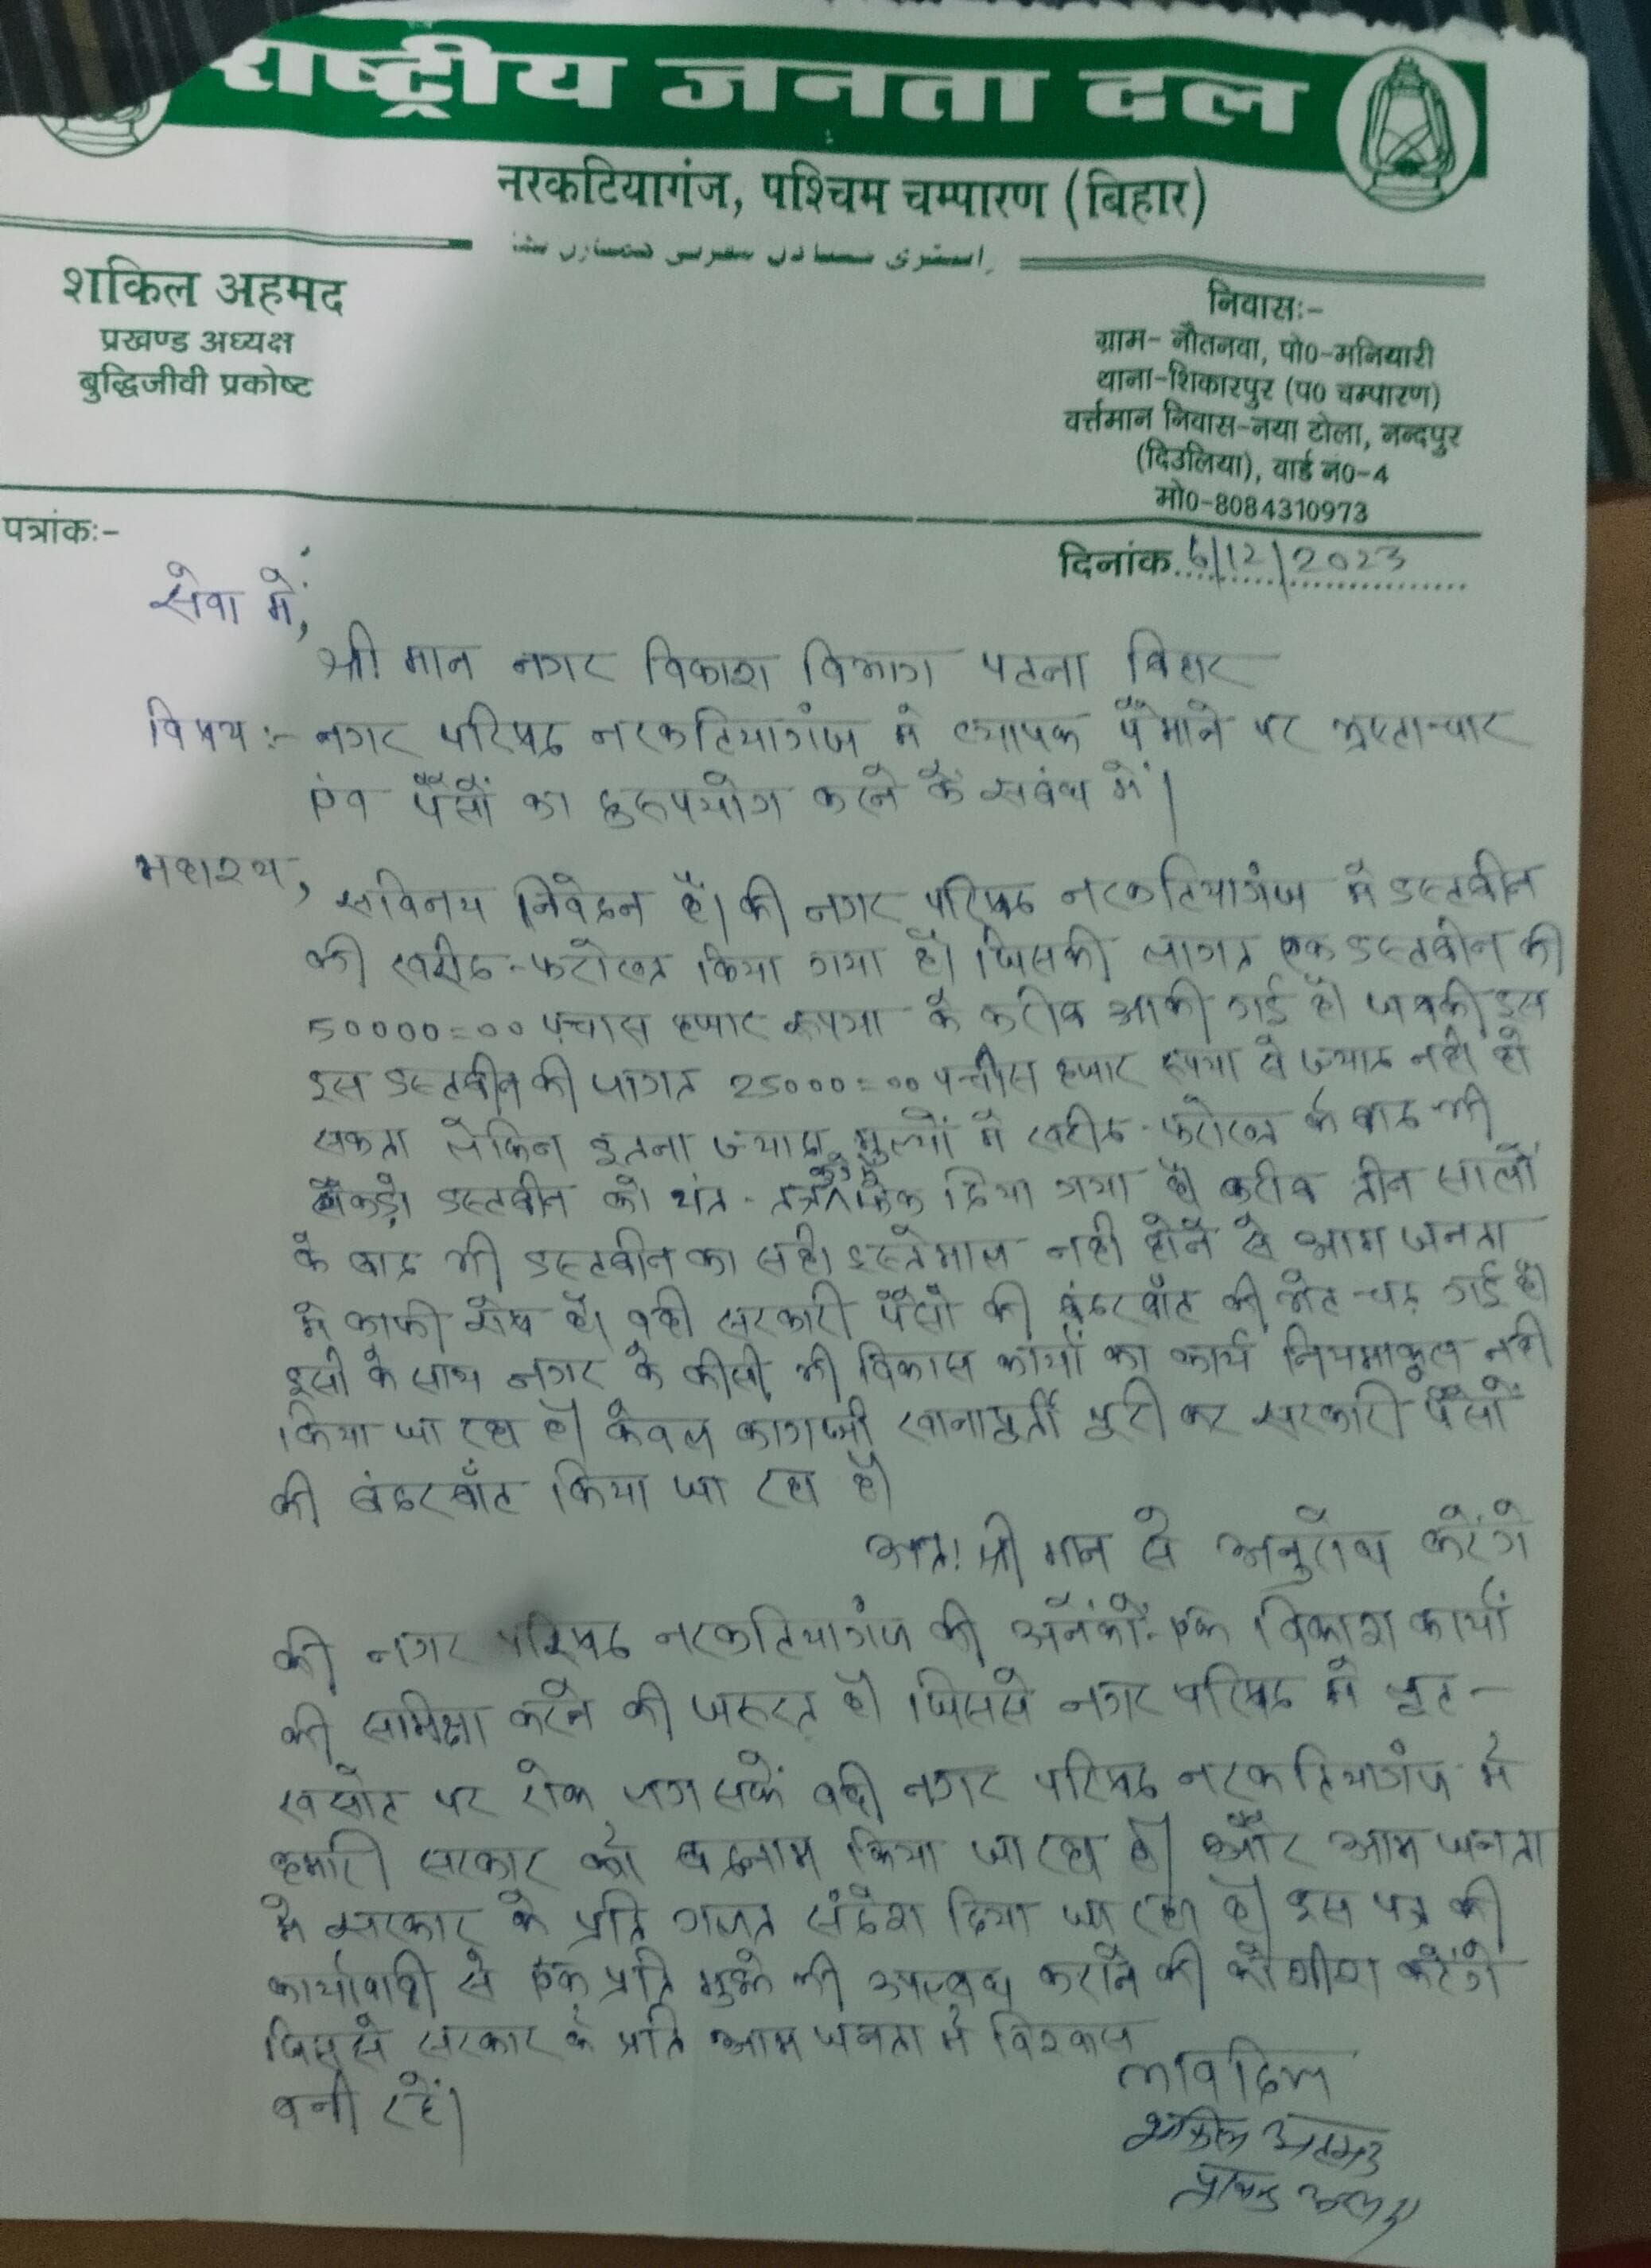 राष्ट्रीय जनता दल
नरकटियागंज, पश्चिम चम्पारण (बिहार)
शकिल अहमद
प्रखण्ड अध्यक्ष
बुद्धिजीवी प्रकोष्ट
निवासः-
ग्राम- नौतनवा, पो०-मनियारी
थाना-शिकारपुर (प० चम्पारण)
वर्त्तमान निवास-नया टोला, नन्दपुर
(दिउलिया), वार्ड नं०-4
मो०-8084310973
पत्रांकः-
दिनांक 6/12/2023
सेवा में,
श्री मान नगर विकाश विभाग पटना बिहार
विषय :- नगर परिषद नरकटियागंज मे व्यापक पैमाने पर भ्रष्टाचार
एंव पैसों का दुरूपयोग करने के संबंध में।
महाश्य,
सविनय निवेदन है। की नगर परिषद नरकटियागंज मे डस्टबीन
की खरीद-फरोख्त किया गया है। जिसकी लागत एक डस्टबीन की
50000=00 पचास हजार रूपया के करीब आकी गई है। जबकी इस
इस डस्टबीन की लागत 25000=00 पच्चीस हजार रूपया से ज्याद नही हो
सकता लेकिन इतना ज्यादा मुल्यों मे खरीद-फरोख्त के बाद भी
सैकड़ो डस्टबीन को यंत्र-तंत्र फेक दिया गया है। करीब तीन सालों
के बाद भी डस्टबीन का सही इस्तेमाल नही होने से आम जनता
मे काफी रोष है। वही सरकारी पैसों की बंदरबाँट की भेंट चढ़ गई है।
इसी के साथ नगर के कीसी भी विकास कार्यों का कार्य नियमाकुल नही
किया जा रहा है। केवल कागजी खानापुर्ती पुरी कर सरकारी पैसों
की बंदरबाँट किया जा रहा है।
अतः श्री मान से अनुरोध करेंगे
की नगर परिषद नरकटियागंज की अनेंकों-एक विकाश कार्यो
की समिक्षा करने की जरूरत है। जिससे नगर परिषद मे लुट-
खसोट पर रोक लग सकें वही नगर परिषद नरकटियागंज में
हमारी सरकार को बदनाम किया जा रहा है। और आम जनता
मे सरकार के प्रति गलत संदेश दिया जा रहा है। इस पत्र की
कार्यावाही से एक प्रति मुझे भी उपलबध कराने की कोशीश करेंगे
जिससे सरकार के प्रति आम जनता में विश्वास
बनी रहें।
शकील अहमद
प्रखण्ड अध्यक्ष